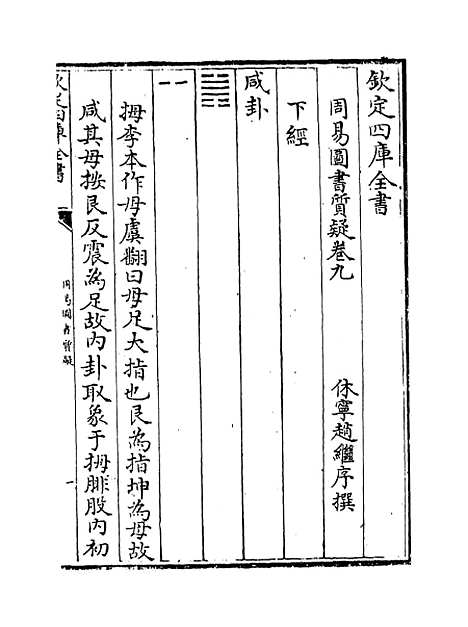 欽定四庫全書
周易圖書質疑卷九
休寧趙繼序撰
下經
咸卦
拇李本作母虞翻曰母足大指也艮為指坤為母故
咸其母按艮反震為足故內卦取象于拇腓股內初
欽定四庫全書
周易圖書質疑
一